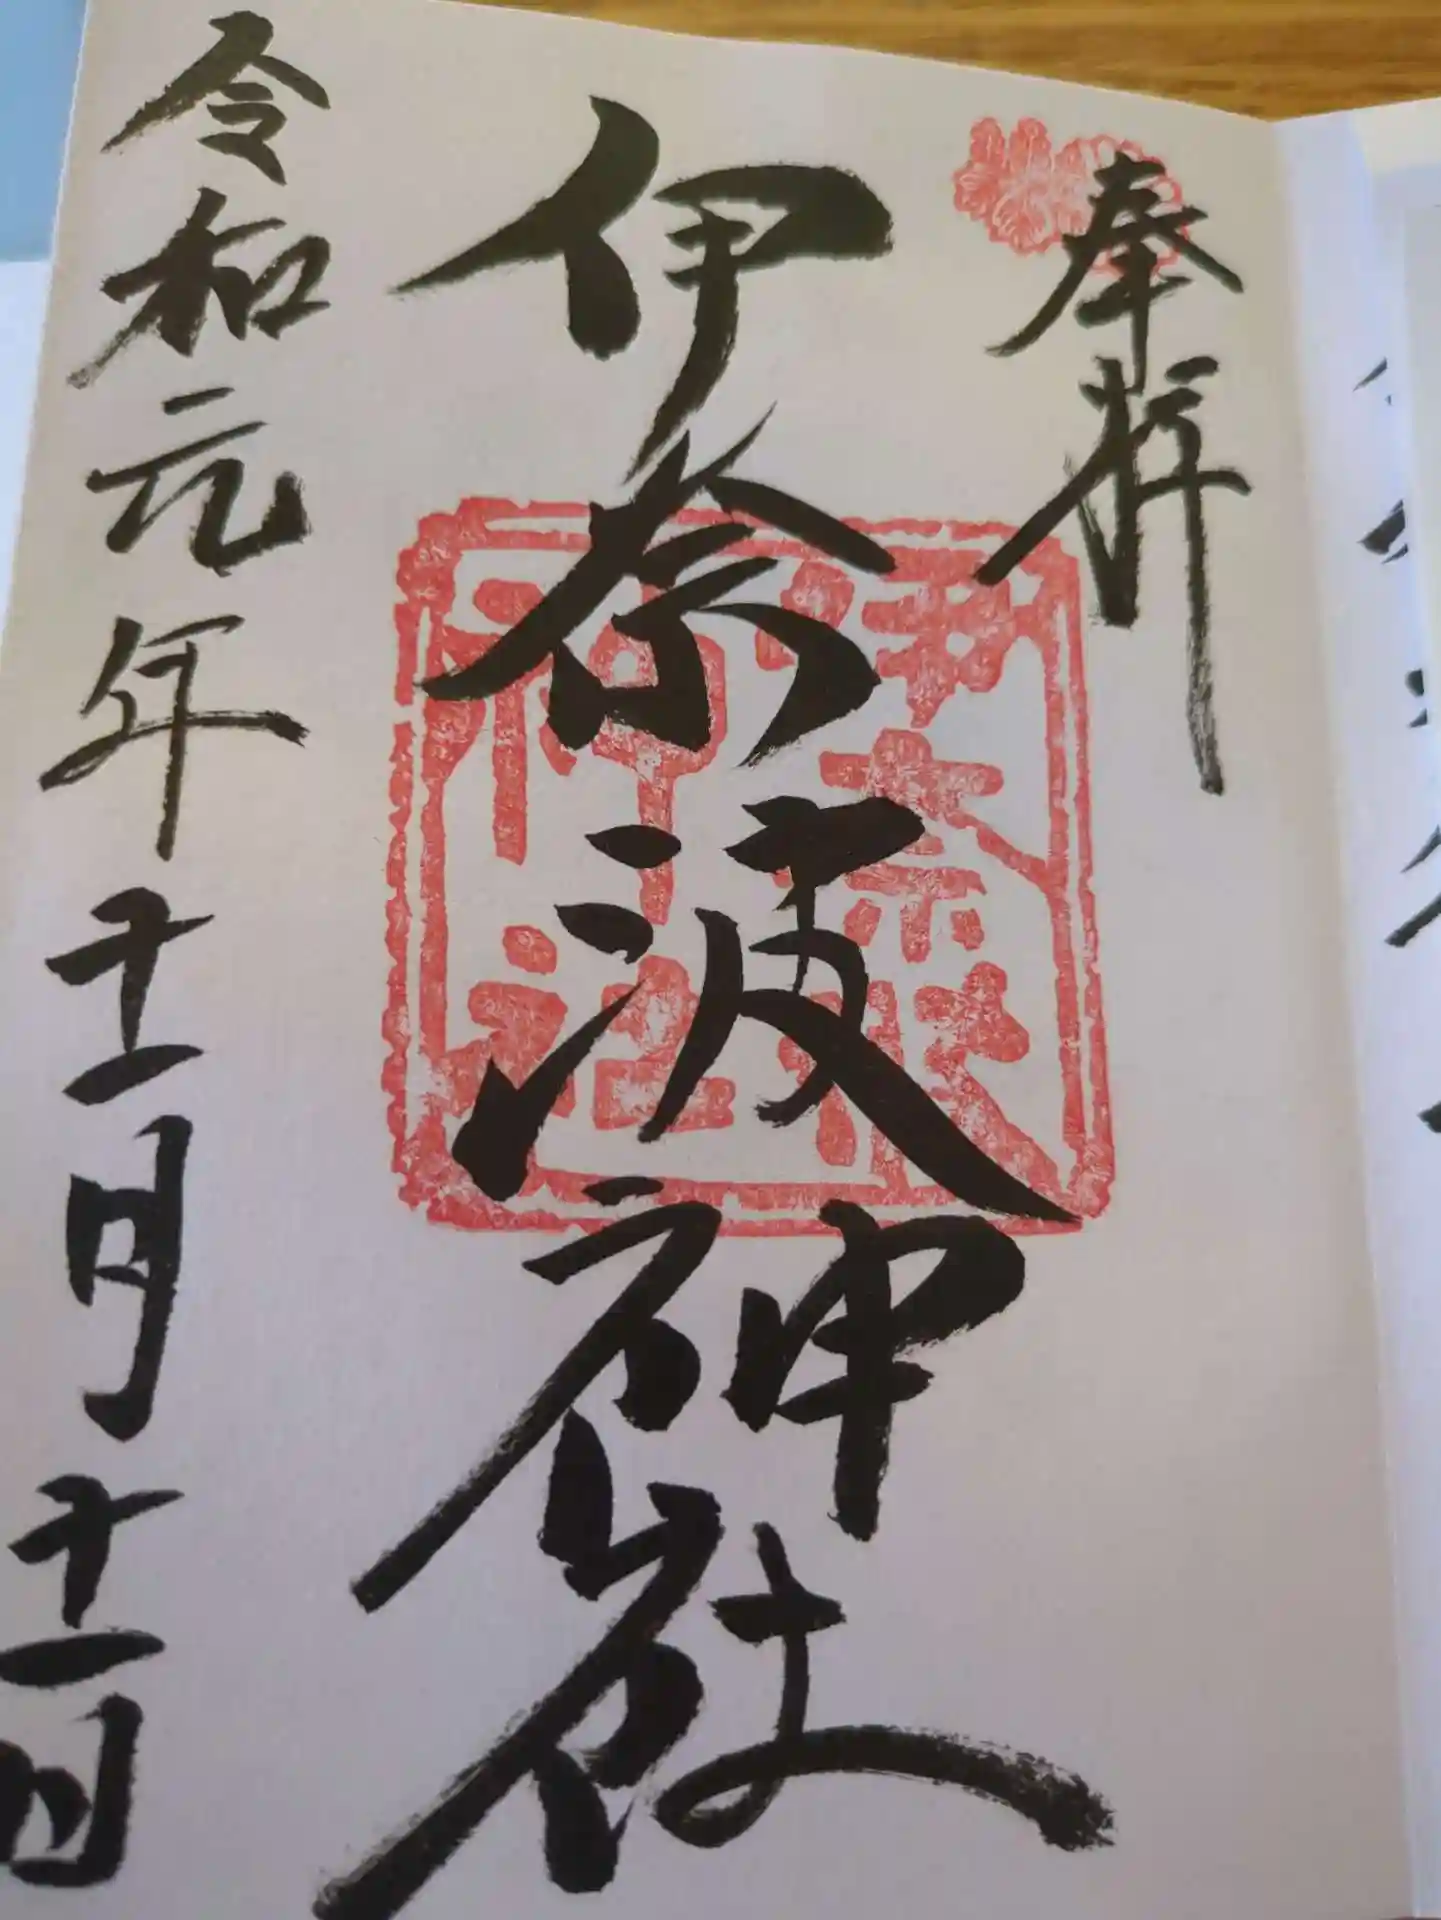 奉拝
伊奈波神社
伊奈波
神社
令和元年十一月十一日